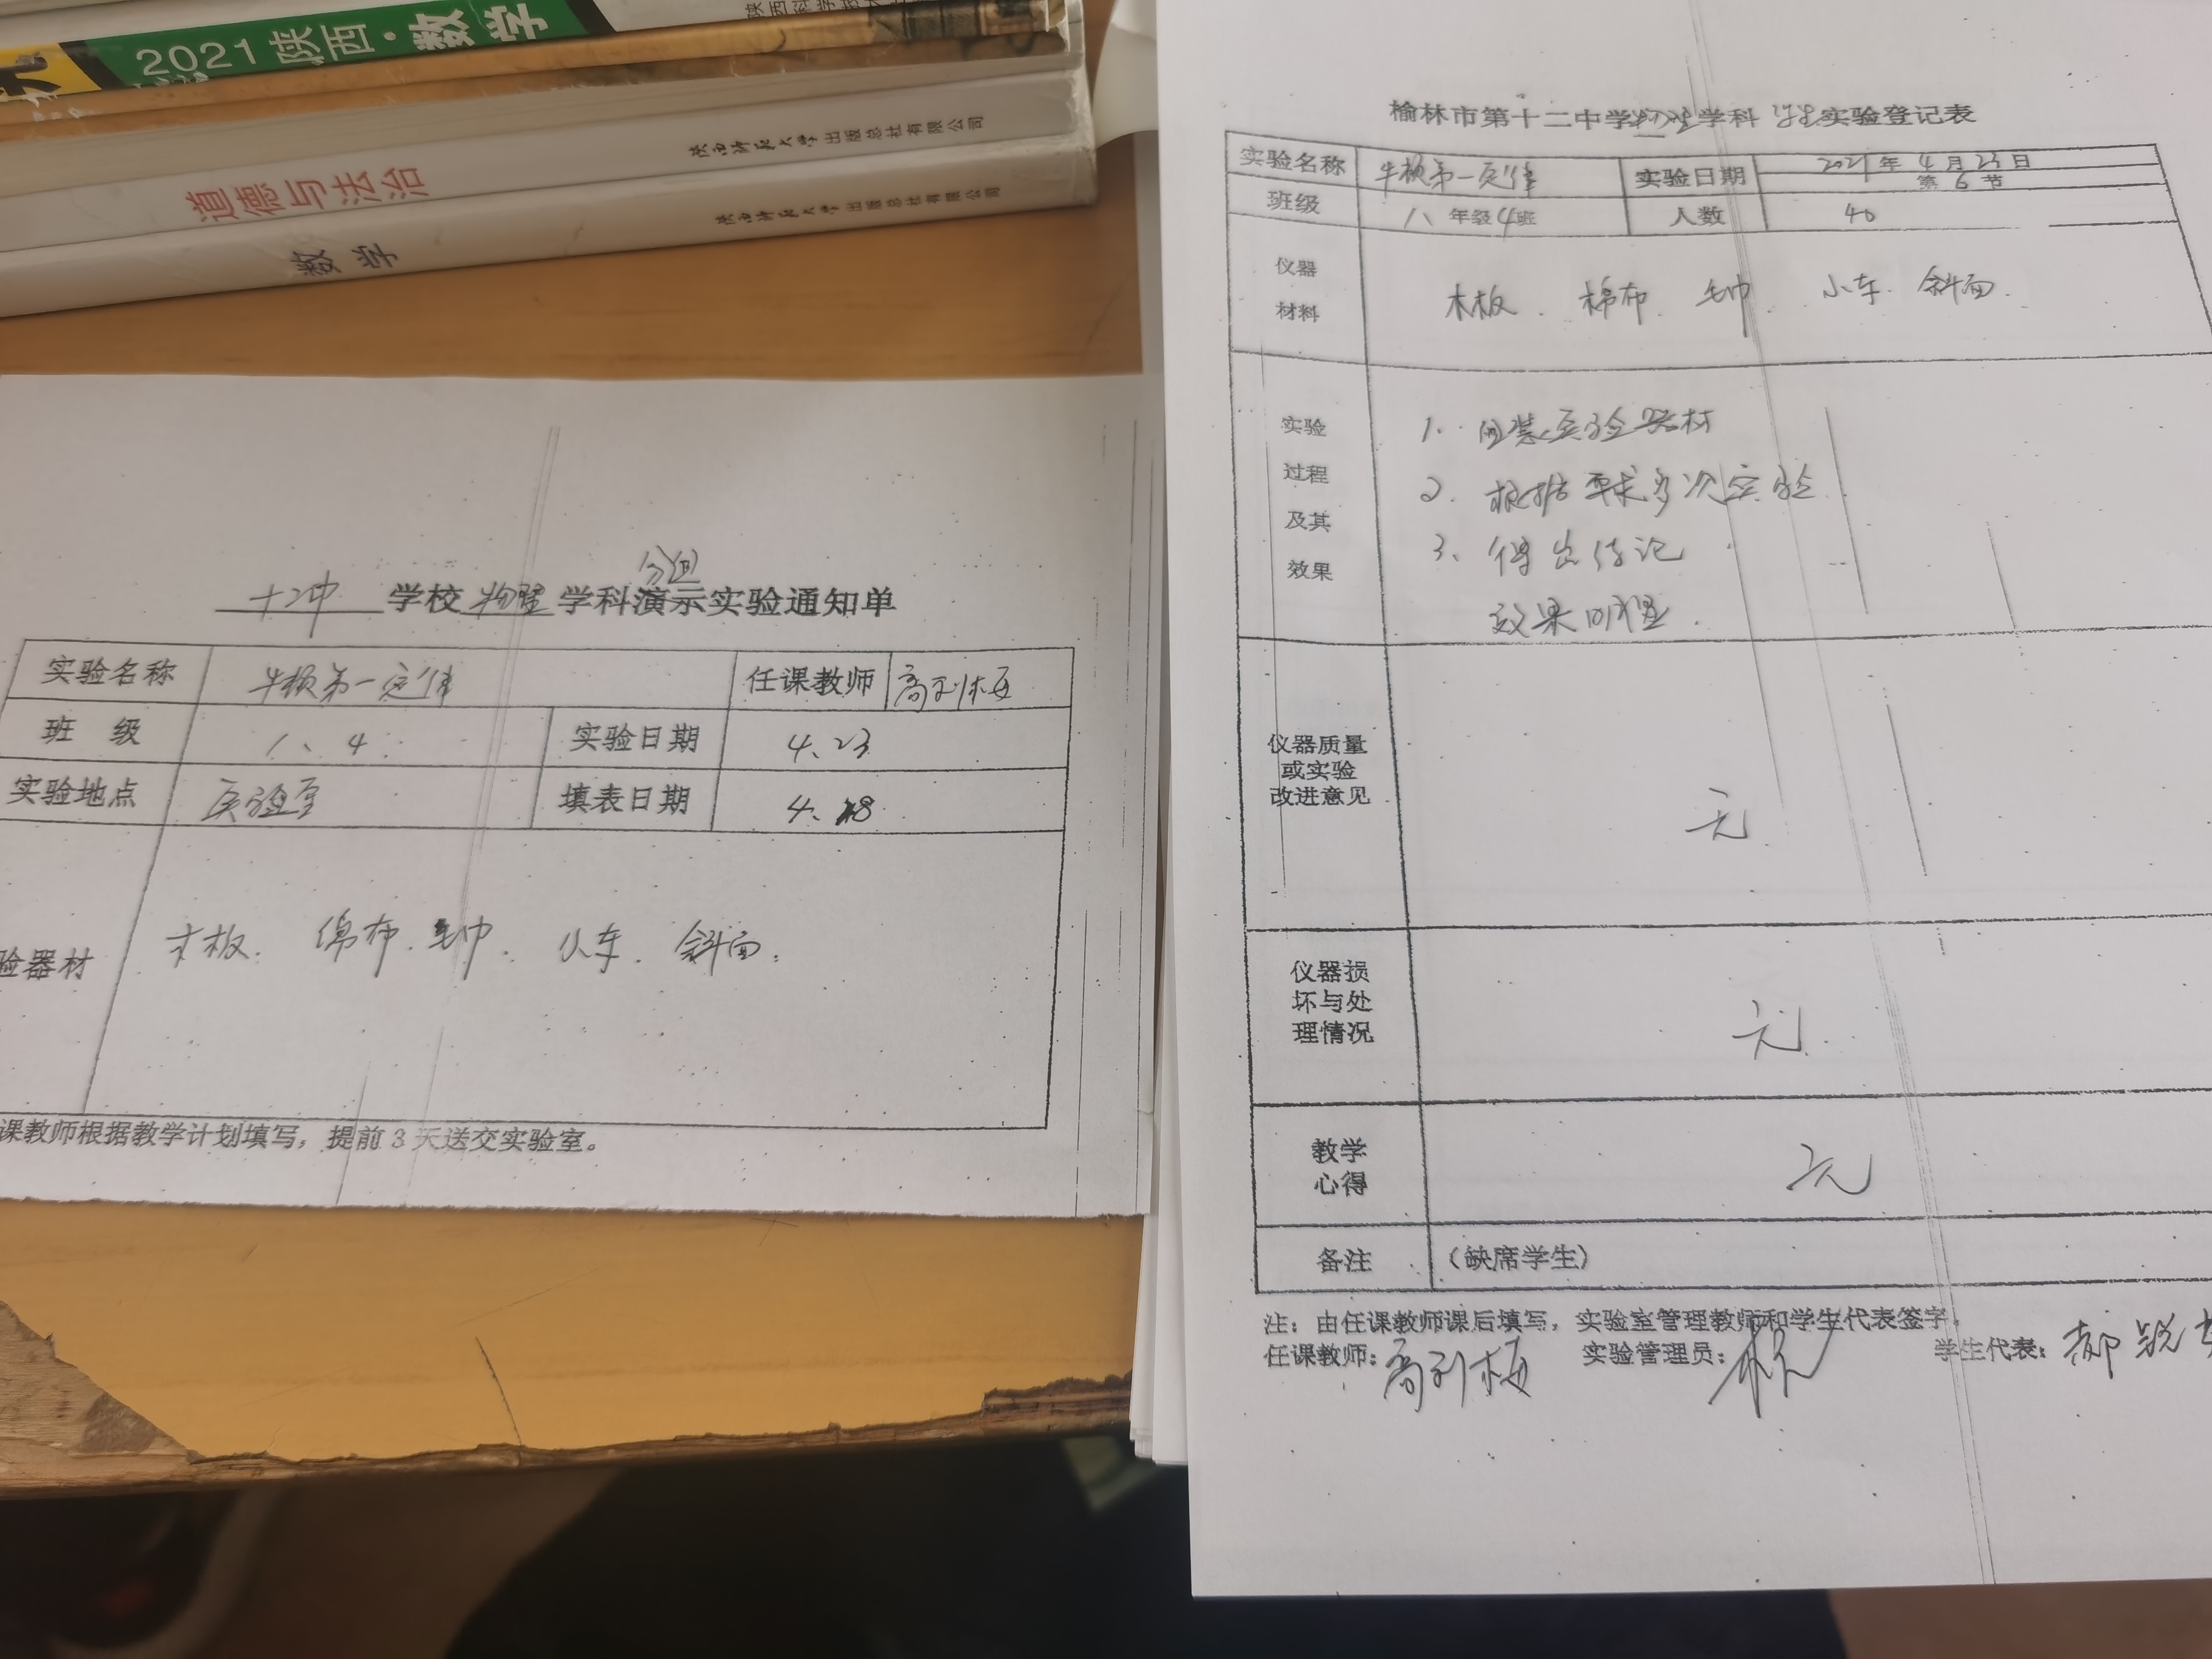 2021 陕西·数学
道德与法治 陕西师范大学出版总社有限公司
数学 陕西师范大学出版总社有限公司
分组
十二中 学校 物理 学科演示实验通知单
实验名称 牛顿第一定律 任课教师 高利梅
班 级 八、4 实验日期 4.23
实验地点 实验室 填表日期 4.18
验器材 木板. 绵布. 毛巾. 小车. 斜面.
课教师根据教学计划填写，提前3天送交实验室。
榆林市第十二中学物理学科 学生实验登记表
实验名称 牛顿第一定律 实验日期 2021年4月23日
第6节
班级 八、年级4班 人数 40
仪器
材料 木板. 棉布. 毛巾. 小车. 斜面.
实验
过程
及其
效果
1. 组装实验器材
2. 根据要求多次实验
3、得出结记
效果明显.
仪器质量
或实验
改进意见 无
仪器损
坏与处
理情况 无.
教学
心得 无
备注 （缺席学生）
注：由任课教师课后填写，实验室管理教师和学生代表签字.
任课教师：高利梅 实验管理员： 学生代表：郝锐